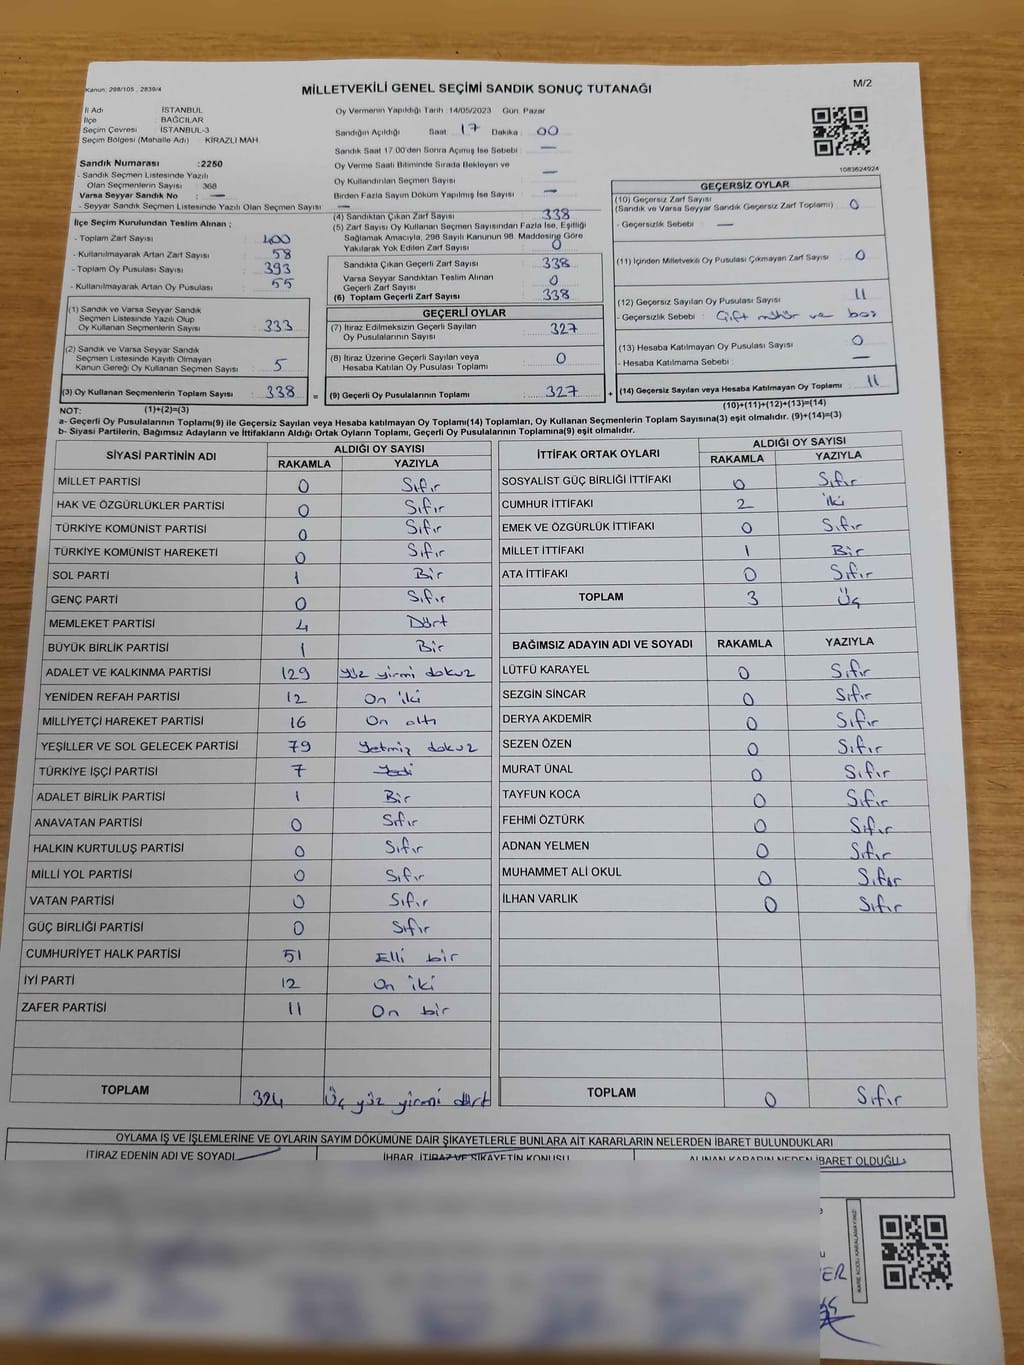 Kanun: 298/105, 2839/4
MİLLETVEKİLİ GENEL SEÇİMİ SANDIK SONUÇ TUTANAĞI
M/2
İl Adı İSTANBUL
İlçe : BAĞCILAR
Seçim Çevresi : İSTANBUL-3
Seçim Bölgesi (Mahalle Adı) KİRAZLI MAH.
Sandık Numarası :2250
- Sandık Seçmen Listesinde Yazılı
Olan Seçmenlerin Sayısı : 368
Varsa Seyyar Sandık No : —
- Seyyar Sandık Seçmen Listesinde Yazılı Olan Seçmen Sayısı : —
Oy Vermenin Yapıldığı Tarih : 14/05/2023 Gün: Pazar
Sandığın Açıldığı Saat: 17 Dakika : 00
Sandık Saat 17.00'den Sonra Açılmış İse Sebebi : —
Oy Verme Saati Bitiminde Sırada Bekleyen ve
Oy Kullandırılan Seçmen Sayısı : —
Birden Fazla Sayım Döküm Yapılmış İse Sayısı : —
1083624924
İlçe Seçim Kurulundan Teslim Alınan :
- Toplam Zarf Sayısı : 400
- Kullanılmayarak Artan Zarf Sayısı : 58
- Toplam Oy Pusulası Sayısı : 393
- Kullanılmayarak Artan Oy Pusulası : 55
(1) Sandık ve Varsa Seyyar Sandık
Seçmen Listesinde Yazılı Olup
Oy Kullanan Seçmenlerin Sayısı : 333
(2) Sandık ve Varsa Seyyar Sandık
Seçmen Listesinde Kayıtlı Olmayan
Kanun Gereği Oy Kullanan Seçmen Sayısı : 5
(3) Oy Kullanan Seçmenlerin Toplam Sayısı : 338 =
(4) Sandıktan Çıkan Zarf Sayısı : 338
(5) Zarf Sayısı Oy Kullanan Seçmen Sayısından Fazla İse, Eşitliği
Sağlamak Amacıyla, 298 Sayılı Kanunun 98. Maddesine Göre
Yakılarak Yok Edilen Zarf Sayısı : 0
Sandıkta Çıkan Geçerli Zarf Sayısı : 338
Varsa Seyyar Sandıktan Teslim Alınan
Geçerli Zarf Sayısı : 0
(6) Toplam Geçerli Zarf Sayısı : 338
GEÇERLİ OYLAR
(7) İtiraz Edilmeksizin Geçerli Sayılan
Oy Pusulalarının Sayısı : 327
(8) İtiraz Üzerine Geçerli Sayılan veya
Hesaba Katılan Oy Pusulası Toplamı : 0
(9) Geçerli Oy Pusulalarının Toplamı : 327 +
GEÇERSİZ OYLAR
(10) Geçersiz Zarf Sayısı
(Sandık ve Varsa Seyyar Sandık Geçersiz Zarf Toplamı) : 0
- Geçersizlik Sebebi : —
(11) İçinden Milletvekili Oy Pusulası Çıkmayan Zarf Sayısı : 0
(12) Geçersiz Sayılan Oy Pusulası Sayısı : 11
- Geçersizlik Sebebi : Çift mühür ve boş
(13) Hesaba Katılmayan Oy Pusulası Sayısı : 0
- Hesaba Katılmama Sebebi : —
(14) Geçersiz Sayılan veya Hesaba Katılmayan Oy Toplamı : 11
(10)+(11)+(12)+(13)=(14)
NOT: (1)+(2)=(3)
a- Geçerli Oy Pusulalarının Toplamı(9) ile Geçersiz Sayılan veya Hesaba katılmayan Oy Toplamı(14) Toplamları, Oy Kullanan Seçmenlerin Toplam Sayısına(3) eşit olmalıdır. (9)+(14)=(3)
b- Siyasi Partilerin, Bağımsız Adayların ve İttifakların Aldığı Ortak Oyların Toplamı, Geçerli Oy Pusulalarının Toplamına(9) eşit olmalıdır.
SİYASİ PARTİNİN ADI ALDIĞI OY SAYISI
RAKAMLA YAZIYLA
MİLLET PARTİSİ 0 Sıfır
HAK VE ÖZGÜRLÜKLER PARTİSİ 0 Sıfır
TÜRKİYE KOMÜNİST PARTİSİ 0 Sıfır
TÜRKİYE KOMÜNİST HAREKETİ 0 Sıfır
SOL PARTİ 1 Bir
GENÇ PARTİ 0 Sıfır
MEMLEKET PARTİSİ 4 Dört
BÜYÜK BİRLİK PARTİSİ 1 Bir
ADALET VE KALKINMA PARTİSİ 129 Yüz yirmi dokuz
YENİDEN REFAH PARTİSİ 12 On iki
MİLLİYETÇİ HAREKET PARTİSİ 16 On altı
YEŞİLLER VE SOL GELECEK PARTİSİ 79 Yetmiş dokuz
TÜRKİYE İŞÇİ PARTİSİ 7 Yedi
ADALET BİRLİK PARTİSİ 1 Bir
ANAVATAN PARTİSİ 0 Sıfır
HALKIN KURTULUŞ PARTİSİ 0 Sıfır
MİLLİ YOL PARTİSİ 0 Sıfır
VATAN PARTİSİ 0 Sıfır
GÜÇ BİRLİĞİ PARTİSİ 0 Sıfır
CUMHURİYET HALK PARTİSİ 51 Elli bir
İYİ PARTİ 12 On iki
ZAFER PARTİSİ 11 On bir
TOPLAM 324 Üç yüz yirmi dört
İTTİFAK ORTAK OYLARI ALDIĞI OY SAYISI
RAKAMLA YAZIYLA
SOSYALİST GÜÇ BİRLİĞİ İTTİFAKI 0 Sıfır
CUMHUR İTTİFAKI 2 iki
EMEK VE ÖZGÜRLÜK İTTİFAKI 0 Sıfır
MİLLET İTTİFAKI 1 Bir
ATA İTTİFAKI 0 Sıfır
TOPLAM 3 Üç
BAĞIMSIZ ADAYIN ADI VE SOYADI RAKAMLA YAZIYLA
LÜTFÜ KARAYEL 0 Sıfır
SEZGİN SİNCAR 0 Sıfır
DERYA AKDEMİR 0 Sıfır
SEZEN ÖZEN 0 Sıfır
MURAT ÜNAL 0 Sıfır
TAYFUN KOCA 0 Sıfır
FEHMİ ÖZTÜRK 0 Sıfır
ADNAN YELMEN 0 Sıfır
MUHAMMET ALİ OKUL 0 Sıfır
İLHAN VARLIK 0 Sıfır
TOPLAM 0 Sıfır
OYLAMA İŞ VE İŞLEMLERİNE VE OYLARIN SAYIM DÖKÜMÜNE DAİR ŞİKAYETLERLE BUNLARA AİT KARARLARIN NELERDEN İBARET BULUNDUKLARI
İTİRAZ EDENİN ADI VE SOYADI İHBAR, İTİRAZ VE ŞİKAYETİN KONUSU ALINAN KARARIN NEDEN İBARET OLDUĞU